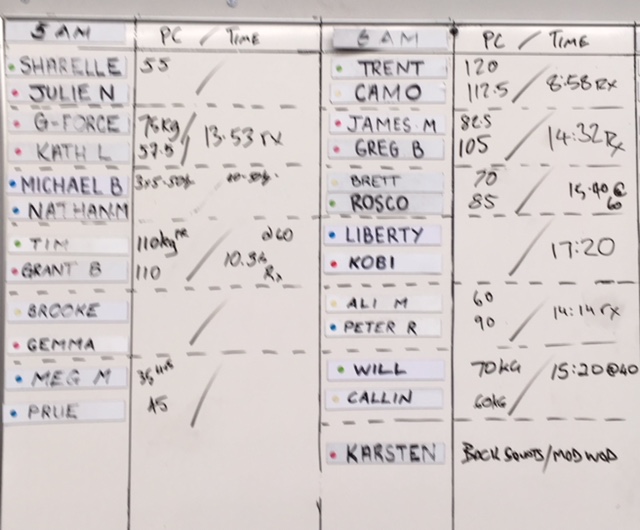 5 AM PC / TIME
SHARELLE 55 /
JULIE N
G-FORCE 75kg / 13.53 rx
KATH L 57.5
MICHAEL B
NATHAN.M
TIM 110kg PR / @60
GRANT B 110 10.36 Rx
BROOKE /
GEMMA
MEG M 35 /
PRUE 45
6 AM PC / TIME
TRENT 120 / 8:58 Rx
CAMO 112.5
JAMES M 82.5 / 14:32 Rx
GREG B 105
BRETT 70 / 15.40 @
ROSCO 85 60
LIBERTY / 17:20
KOBI
ALI M 60 / 14:14 rx
PETER R 90
WILL 70kg / 15:20@40
CALLIN 60kg
KARSTEN BACK SQUATS/MOD WOD